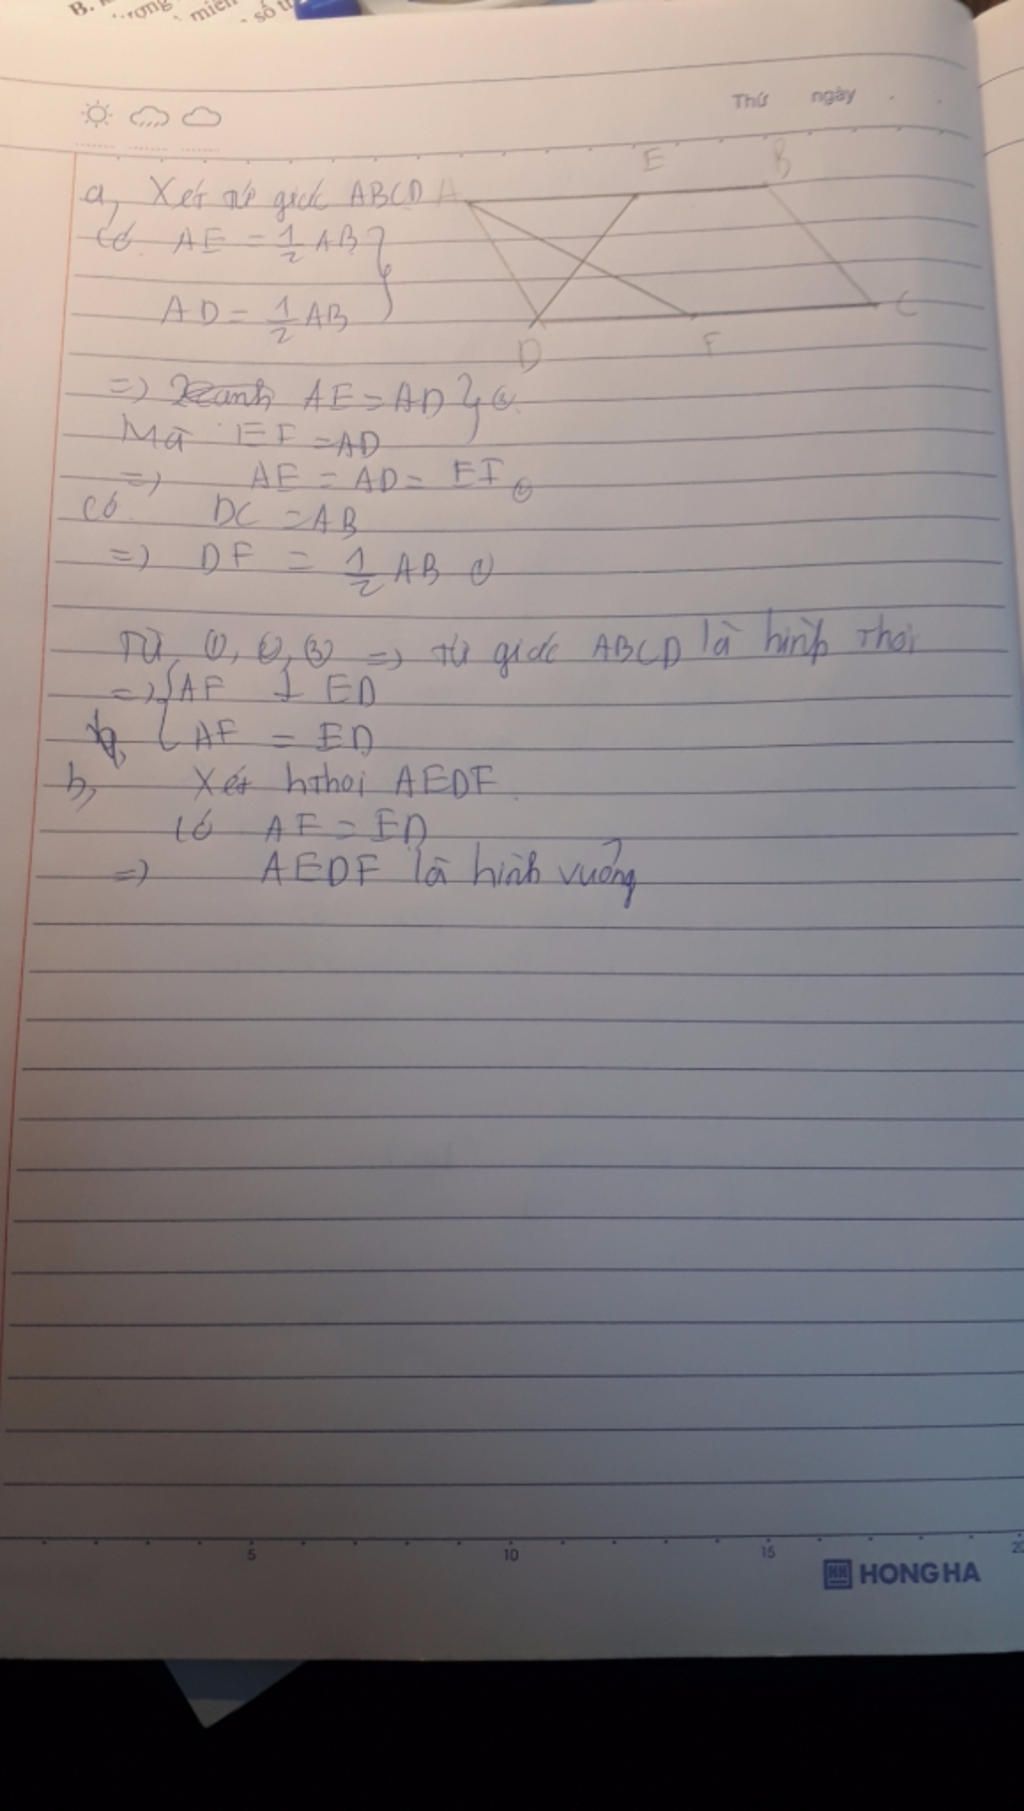 B.
miền
số
Thứ ngày
a, Xét tứ giác ABCD
A E B
Có AE = 1/2 AB
AD = 1/2 AB
C
D F
=> AE = AD
Mà EF = AD
=> AE = AD = EF
Có DC = AB
=> DF = 1/2 AB ①
Từ ①, ②, ③ => tứ giác ABCD là hình thoi
=> { AF ⊥ ED
AF = ED
b, Xét hthoi AEDF
Có AF = ED
=> AEDF là hình vuông
5 10 15 20
HONG HA